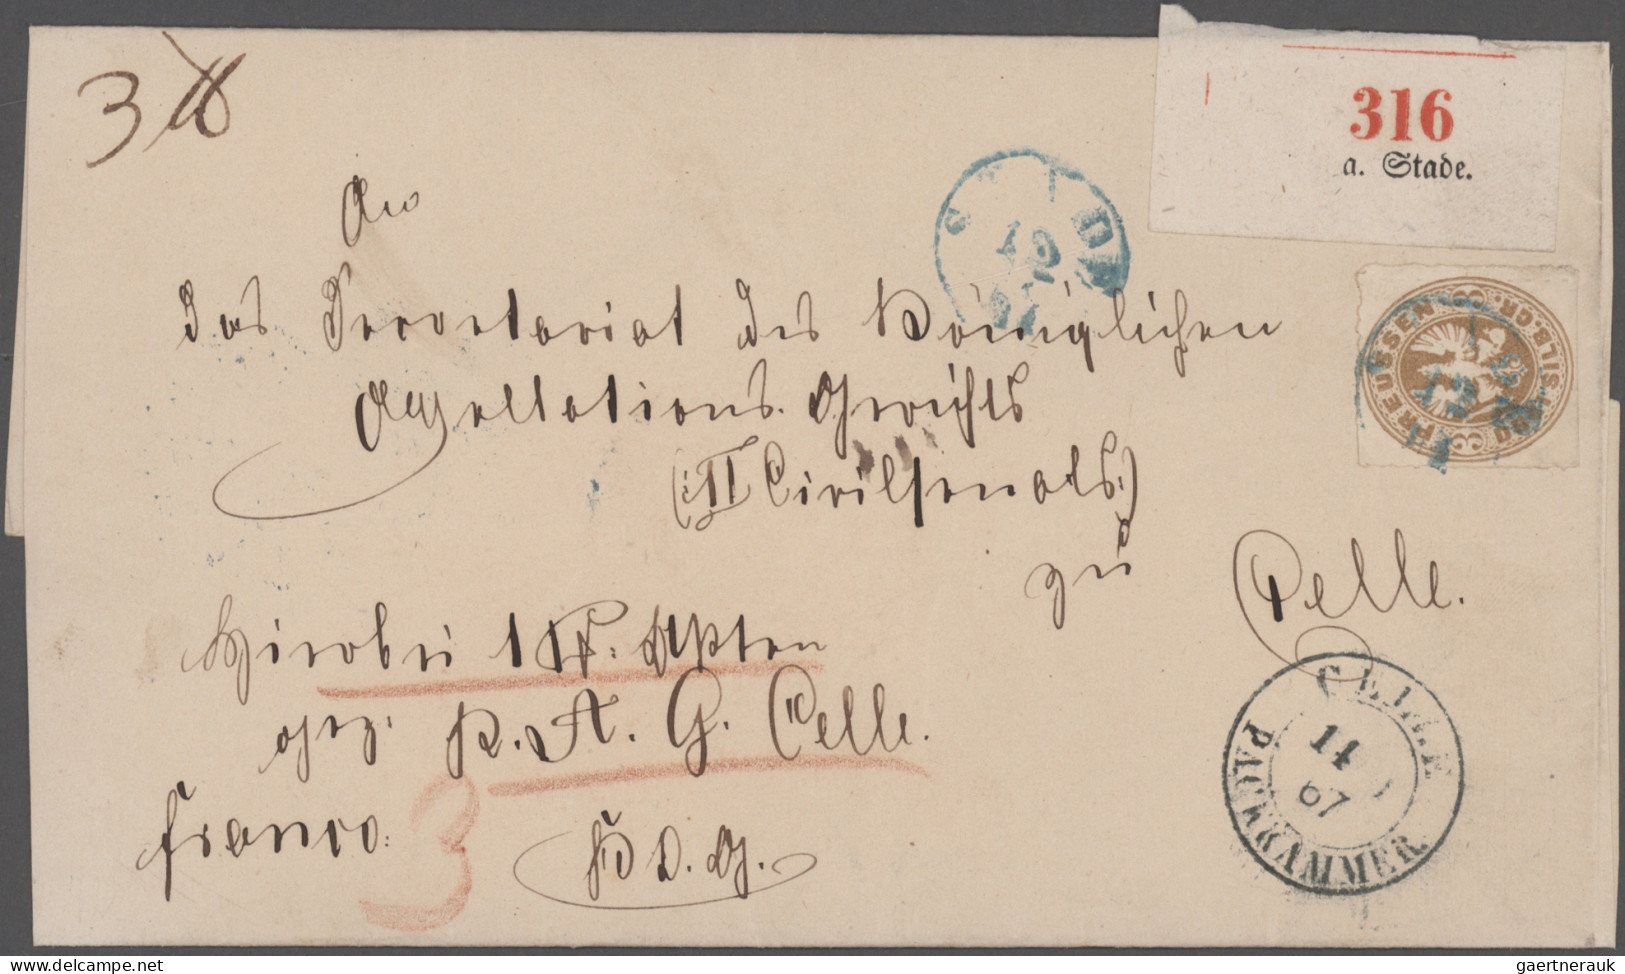 3 ℔
316
a. Stade.
An
das Secretariat des Königlichen
Appellations-Gerichts
(: II Civilsenats :)
zu
Celle.
Hierbei 1 P. Akten
gez. K. A. G. Celle.
franco.
3
STADE
PREUSSEN
3 SILB.GR. 3
CELLE
14
67
PACKKAMMER.
www.delcampe.net
gaertnerauk